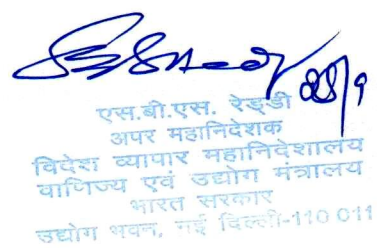 28/9
एस.बी.एस. रेड्डी
अपर महानिदेशक
विदेश व्यापार महानिदेशालय
वाणिज्य एवं उद्योग मंत्रालय
भारत सरकार
उद्योग भवन, नई दिल्ली-110 011